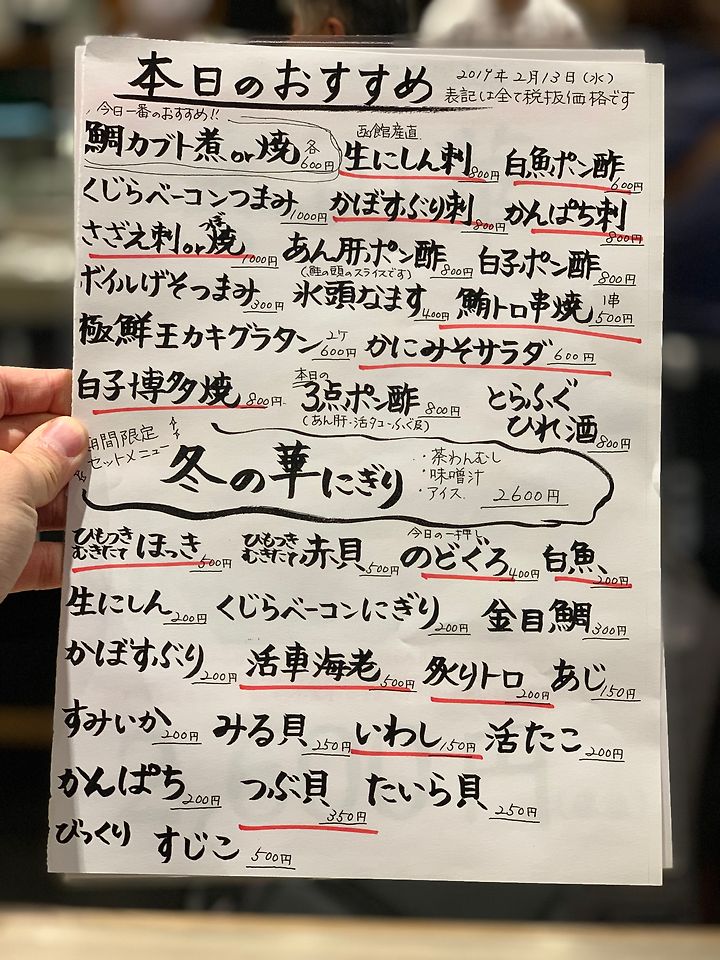 本日のおすすめ 2019年2月13日(水)
表記は全て税抜価格です
今日一番のおすすめ!!
鯛カブト煮or焼 各600円 函館産直 生にしん刺 800円 白魚ポン酢 600円
くじらベーコンつまみ 1000円 かぼすぶり刺 800円 かんぱち刺 800円
さざえ刺orつぼ焼 1000円 あん肝ポン酢 800円 白子ポン酢 800円
ボイルげそつまみ 300円 (鮭の頭のスライスです) 氷頭なます 400円 鮪トロ串焼 1串500円
極鮮王カキグラタン 2ケ600円 かにみそサラダ 600円
白子博多焼 800円 本日の3点ポン酢 800円 とらふぐ
(あん肝・活タコ・ふぐ皮) ひれ酒 800円
期間限定
セットメニュー
冬の華にぎり
・茶わんむし
・味噌汁
・アイス 2600円
ひもつきむきたて ほっき 500円 ひもつきむきたて 赤貝 500円 今日の一押し のどぐろ 400円 白魚 200円
生にしん 200円 くじらベーコンにぎり 200円 金目鯛 300円
かぼすぶり 200円 活車海老 500円 炙りトロ 200円 あじ 150円
すみいか 200円 みる貝 250円 いわし 150円 活たこ 200円
かんぱち 200円 つぶ貝 350円 たいら貝 250円
びっくり すじこ 500円